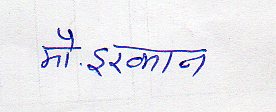 मौ. इरफान